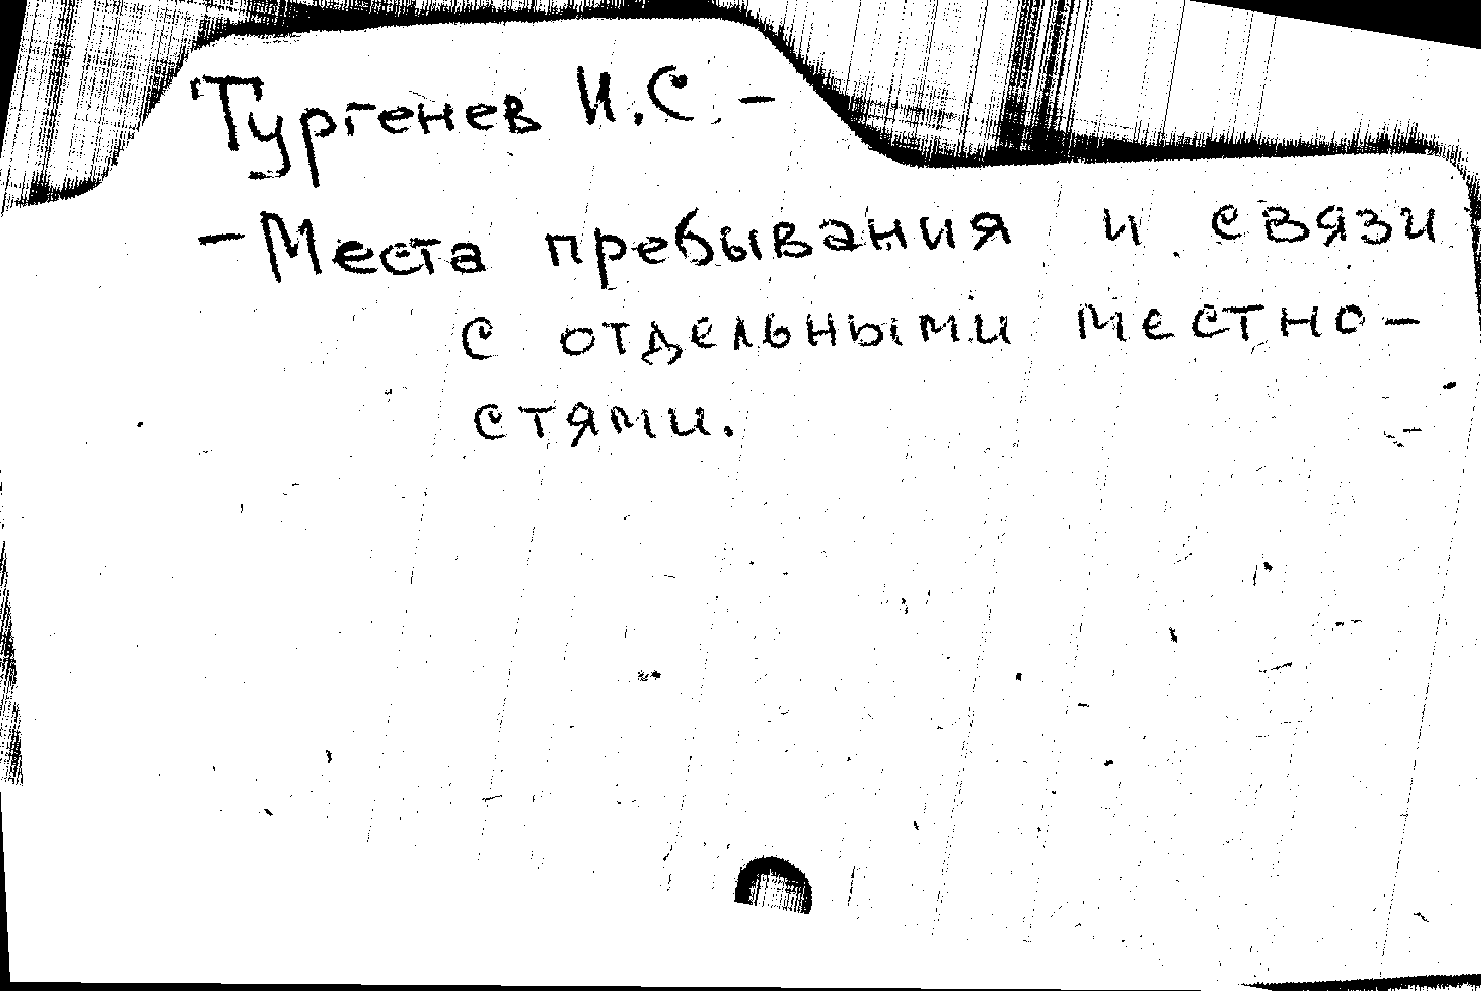 Тургенев И.С –
– Места пребывания и связи
с отдельными местно–
стями.